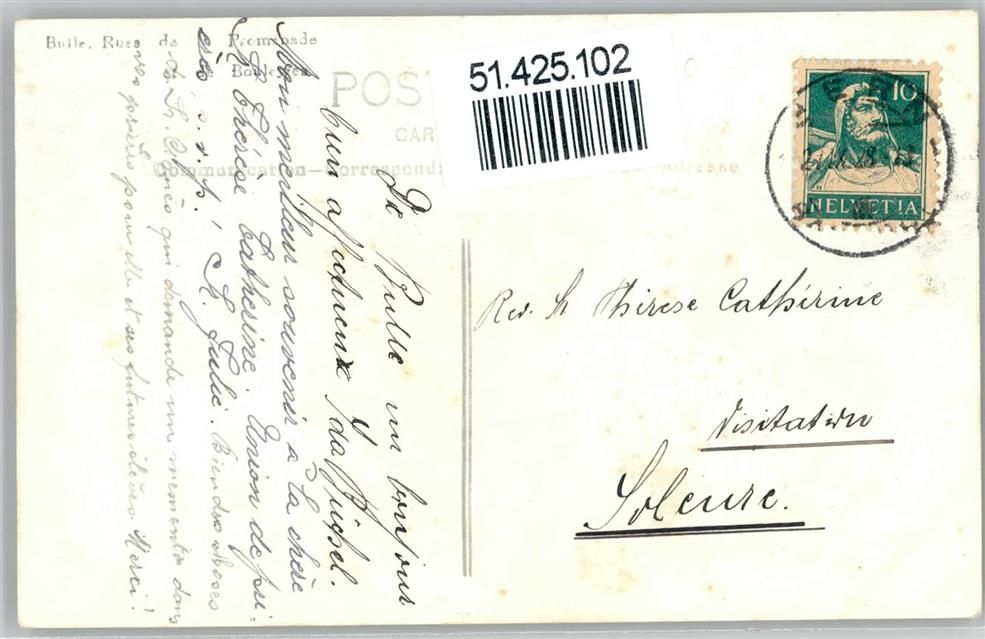 Bulle. Rues de la Promenade
et Bouleyres
POST
CAR
Communication—Correspond
dresse
51.425.102
10
HELVETIA
De Bulle un bonjour
bien affectueux Ida
Mon meilleur souvenir à la chère
S. Thérèse Catherine. Union de pri-
ères s. v. p.! S. Julie. Bien des choses
de Sr. qui demande un memento dans
vos prières pour elle et ses futurs élèves Merci!
Rev. S. Thérese Cathérine
Visitation
Soleure.